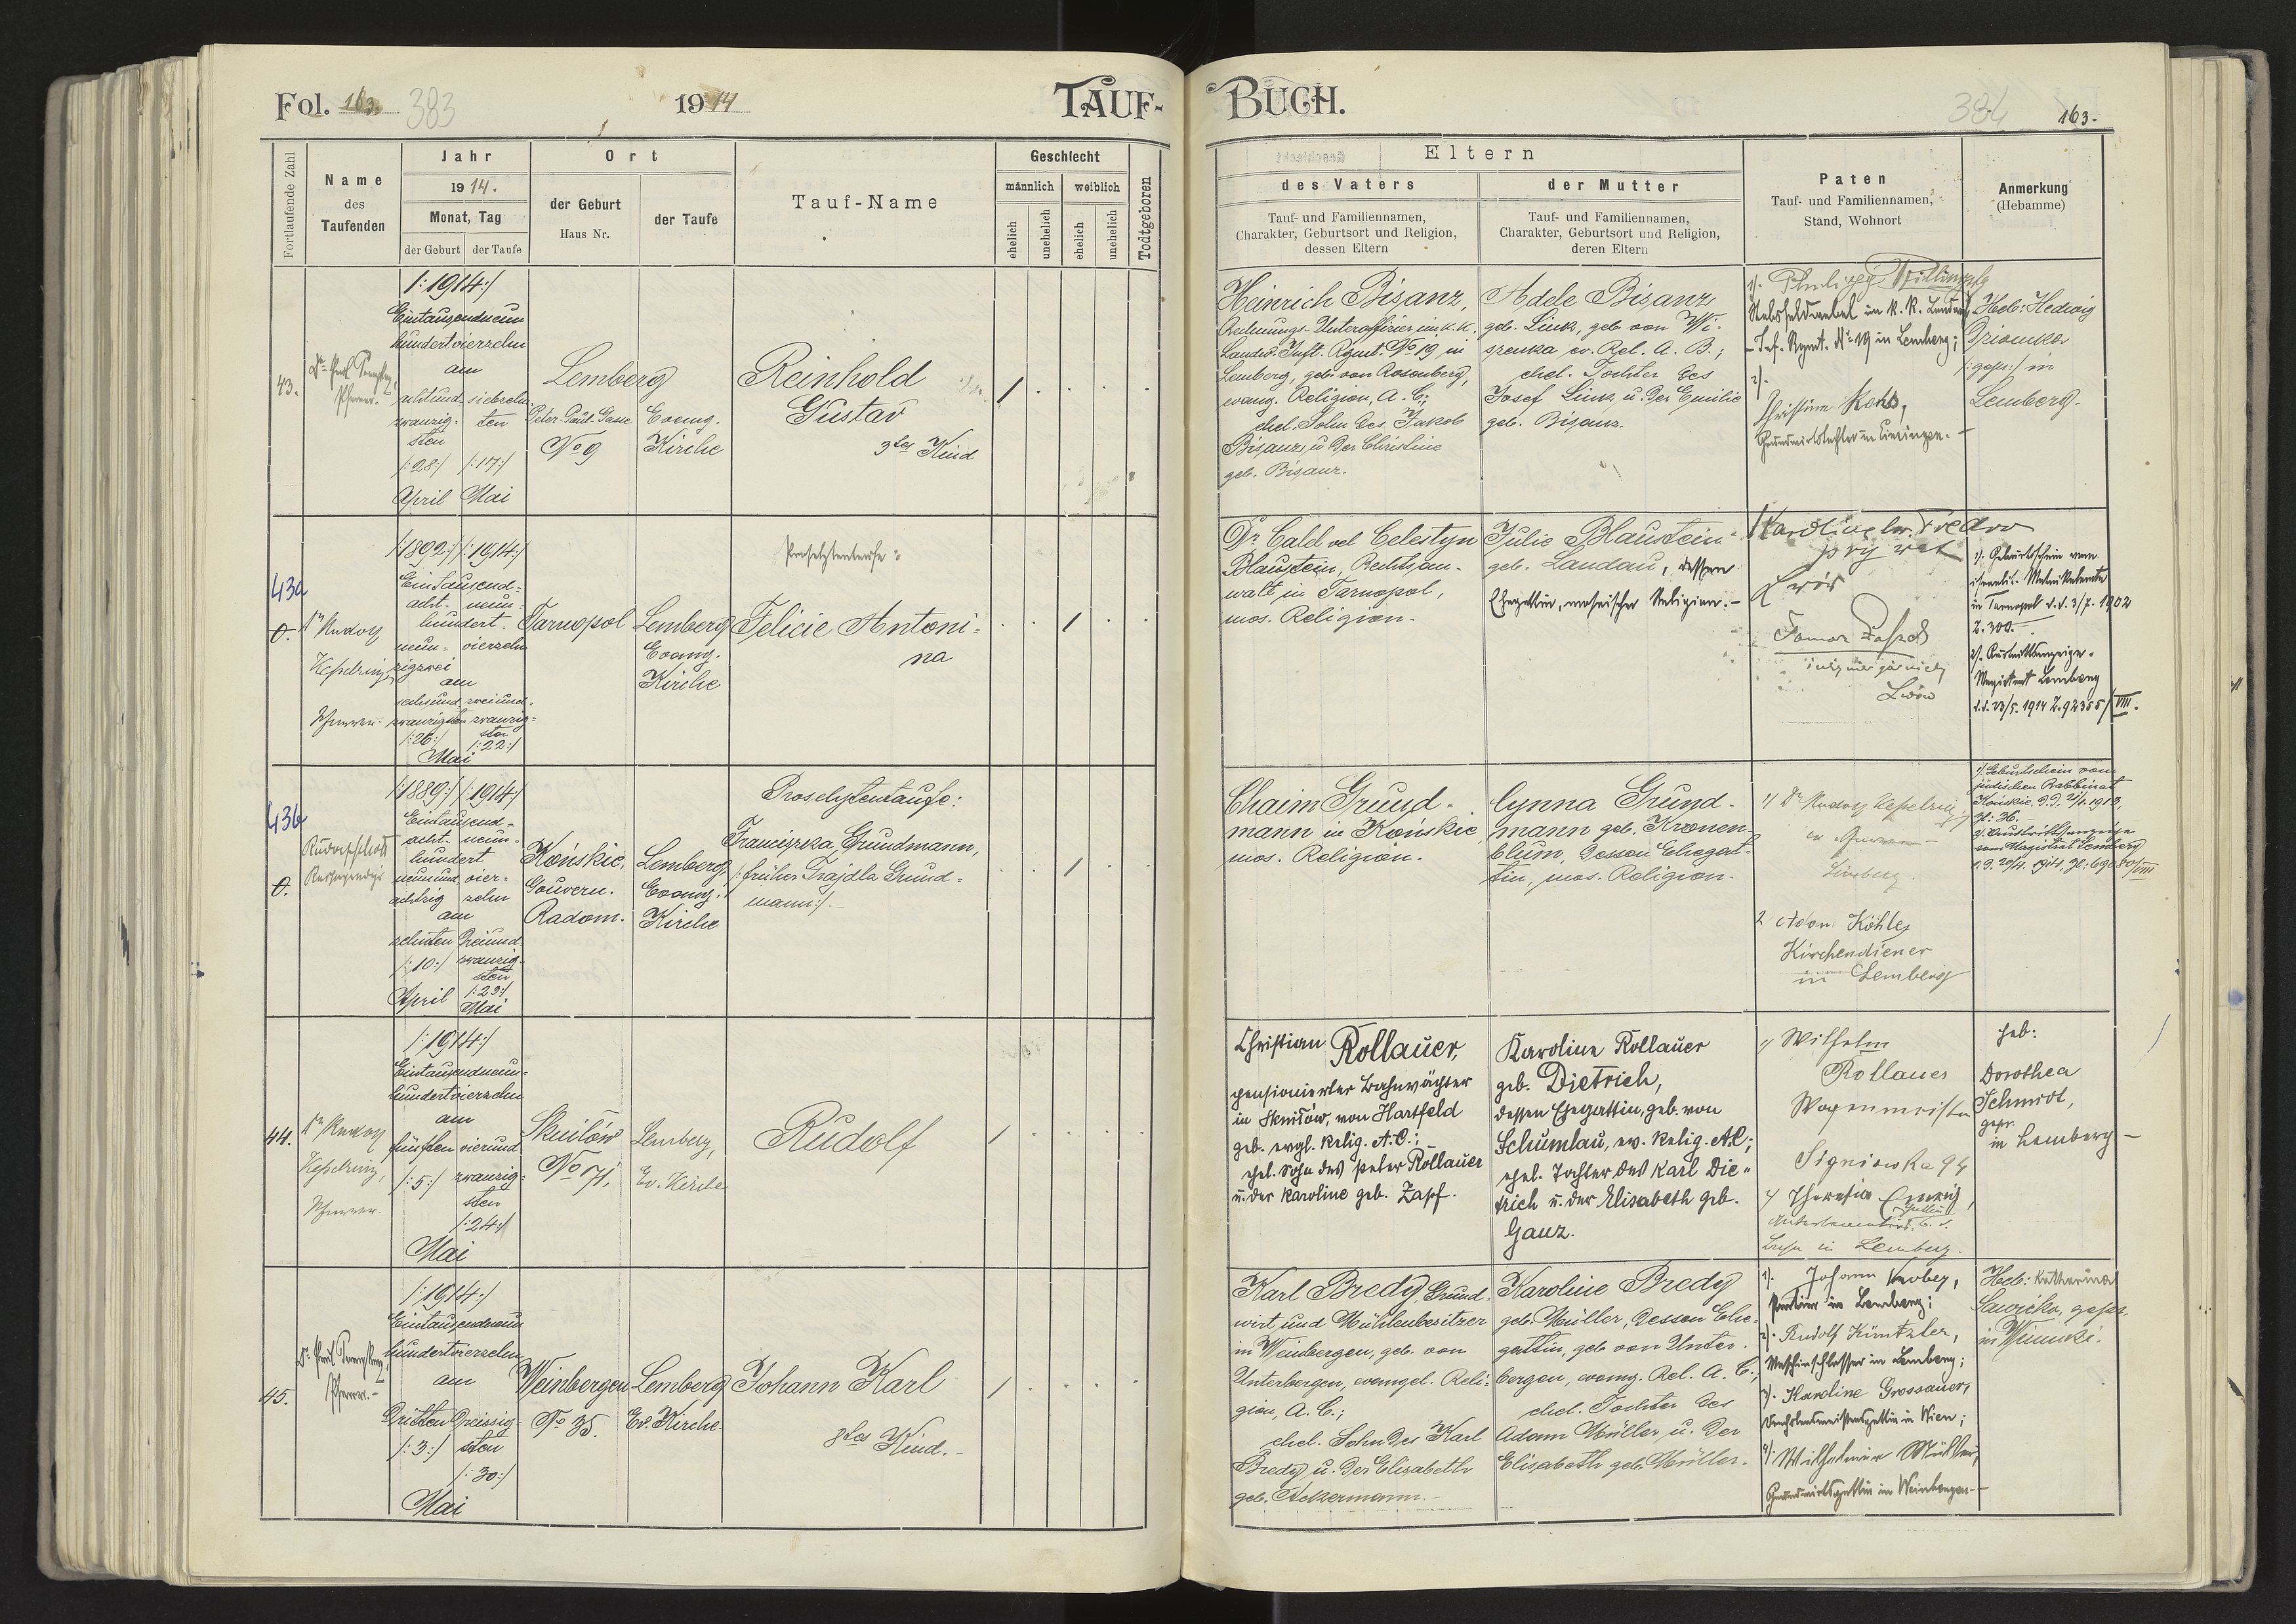 Fol. 163. 383
1914
TAUF-
Fortlaufende Zahl
Name
des
Taufenden
Jahr
1914.
Monat, Tag
der Geburt
der Taufe
Ort
der Geburt
Haus Nr.
der Taufe
Tauf-Name
Geschlecht
männlich
weiblich
ehelich
unehelich
ehelich
unehelich
Todtgeboren
43.
Pfarrer.
/:1914:/
Eintausendneun
hundertvierzehn
am
achtund- siebzehn
zwanzig- ten
sten
/:28:/ /:17:/
April Mai
Lemberg
Peter-Paul-Gasse
No 9
Evang.
Kirche
Reinhold
Gustav
3tes Kind
43a
0.
Dr Rudolf
Kesselring,
Pfarrer.
/:1892:/ /:1914:/
Eintausend-
acht- neun-
hundert
neun- vierzehn
zigzwei
am
sechsund zweiund-
zwanzigsten zwanzig-
sten
/:26:/ /:22:/
Mai
Tarnopol
Lemberg
Evang.
Kirche
Proselytentaufe:
Felicie Antoni-
na
43b
0.
/:1889:/ /:1914:/
Eintausend-
acht- neun-
hundert
neunund vier-
achtzig zehn
am
zehnten dreiund-
/:10:/ zwanzig-
sten
April /:23:/
Mai
Końskie,
Gouvern.
Radom.
Lemberg,
Evang.
Kirche
Proselytentaufe:
Franciszka Grundmann,
/:früher Frajdla Grund-
mann:/.-
44.
Dr Rudolf
Kesselring,
Pfarrer.
/:1914:/
Eintausendneun-
hundertvierzehn
am
fünften vierund
/:5:/ zwanzig-
sten
/:24:/
Mai
Skniłów
No 71,
Lemberg,
Ev. Kirche
Rudolf
45.
Pfarrer.-
/:1914:/
Eintausendneun
hundertvierzehn
am
dritten dreissig-
/:3:/ sten
/:30:/
Mai
Weinbergen
No 35.
Lemberg
Ev. Kirche.
Johann Karl
3tes Kind.-
BUCH.
384
163.
Eltern
des Vaters
Tauf- und Familiennamen,
Charakter, Geburtsort und Religion,
dessen Eltern
der Mutter
Tauf- und Familiennamen,
Charakter, Geburtsort und Religion,
deren Eltern
Paten
Tauf- und Familiennamen,
Stand, Wohnort
Anmerkung
(Hebamme)
Heinrich Bisanz,
Rechnungs-Unteroffizier im k.k.
Landw. Inft. Rgmt. No 19 in
Lemberg, geb. von Rosenberg,
evang. Religion, A.C.;
ehel. Sohn des Jakob
Bisanz, u. der Christine
geb. Bisanz.
Adele Bisanz,
geb. Link, geb. von Wi-
szenka ev. Rel. A. B.;
ehel. Tochter des
Josef Link, u. der Emilie
geb. Bisanz.
1).
Stabsfeldwebel im k. k. Landw.
-Inf.-Regmt. No 19 in Lemberg;
2).
Christine
Heb: Hedwig
/:gepr:/ in
Lemberg.
Dr Cald vel Celestyn
Blaustein, Rechtsan-
walt in Tarnopol,
mos. Religion.
Julie Blaustein
geb. Landau, dessen
Ehegattin, mosaischer Religion.-
Lwów
Lwów
1). Geburtsschein vom
israelit. Matrikelamte
in Tarnopol d.d. 3/7. 1902
Z. 300.
2). Austrittsanzeige.
Magistrat Lemberg
d.d. 23/5. 1914 Z. 92355/VIII.
Chaim Grund-
mann in Końskie
mos. Religion.
Cynna Grund-
mann geb. Kronen-
blum, dessen Ehegat-
tin, mos. Religion.
1) Dr Rudolf Kesselring
Lemberg.
2 Adam Köhler
Kirchendiener
in Lemberg
1). Geburtsschein vom
jüdischen Rabbinat
Końskie
2). Austrittsanzeige
vom Magistrat Lemberg
Christian Rollauer,
pensionierter Bahnwächter
in Skniłów, von Hartfeld
geb. evgl. Relig. A.C.;
ehel. Sohn des Peter Rollauer
u. der Karoline geb. Zapf.
Karoline Rollauer
geb. Dietrich,
dessen Ehegattin, geb. von
Schumlau, ev. Relig. A.C;
ehel. Tochter des Karl Die-
trich u. der Elisabeth geb.
Ganz.
1) Wilhelm
Rollauer
Wagenmeister
Signiowka 94
2) Theresia
in Lemberg.
Heb:
Dorothea
Schmidt,
gepr.
in Lemberg-
Karl Bredy, Grund-
wirt und Mühlenbesitzer
in Weinbergen, geb. von
Unterbergen, evangel. Reli-
gion, A. C.;
ehel. Sohn des Karl
Bredy u. der Elisabeth
geb. Ackermann.-
Karoline Bredy
geb. Müller, dessen Ehe-
gattin, geb. von Unter-
bergen, evang. Rel. A. C.;
ehel. Tochter des
Adam Müller u. der
Elisabeth geb. Müller.
1). Johann
in Lemberg;
2). Rudolf Küntzler,
Maschinschlosser in Lemberg;
3). Karoline Grossauer,
in Wien;
4). Wilhelmine Müller,
Grundwirtsgattin in Weinbergen-
Heb: Katharina
Sawicka, gepr.
in Winniki.